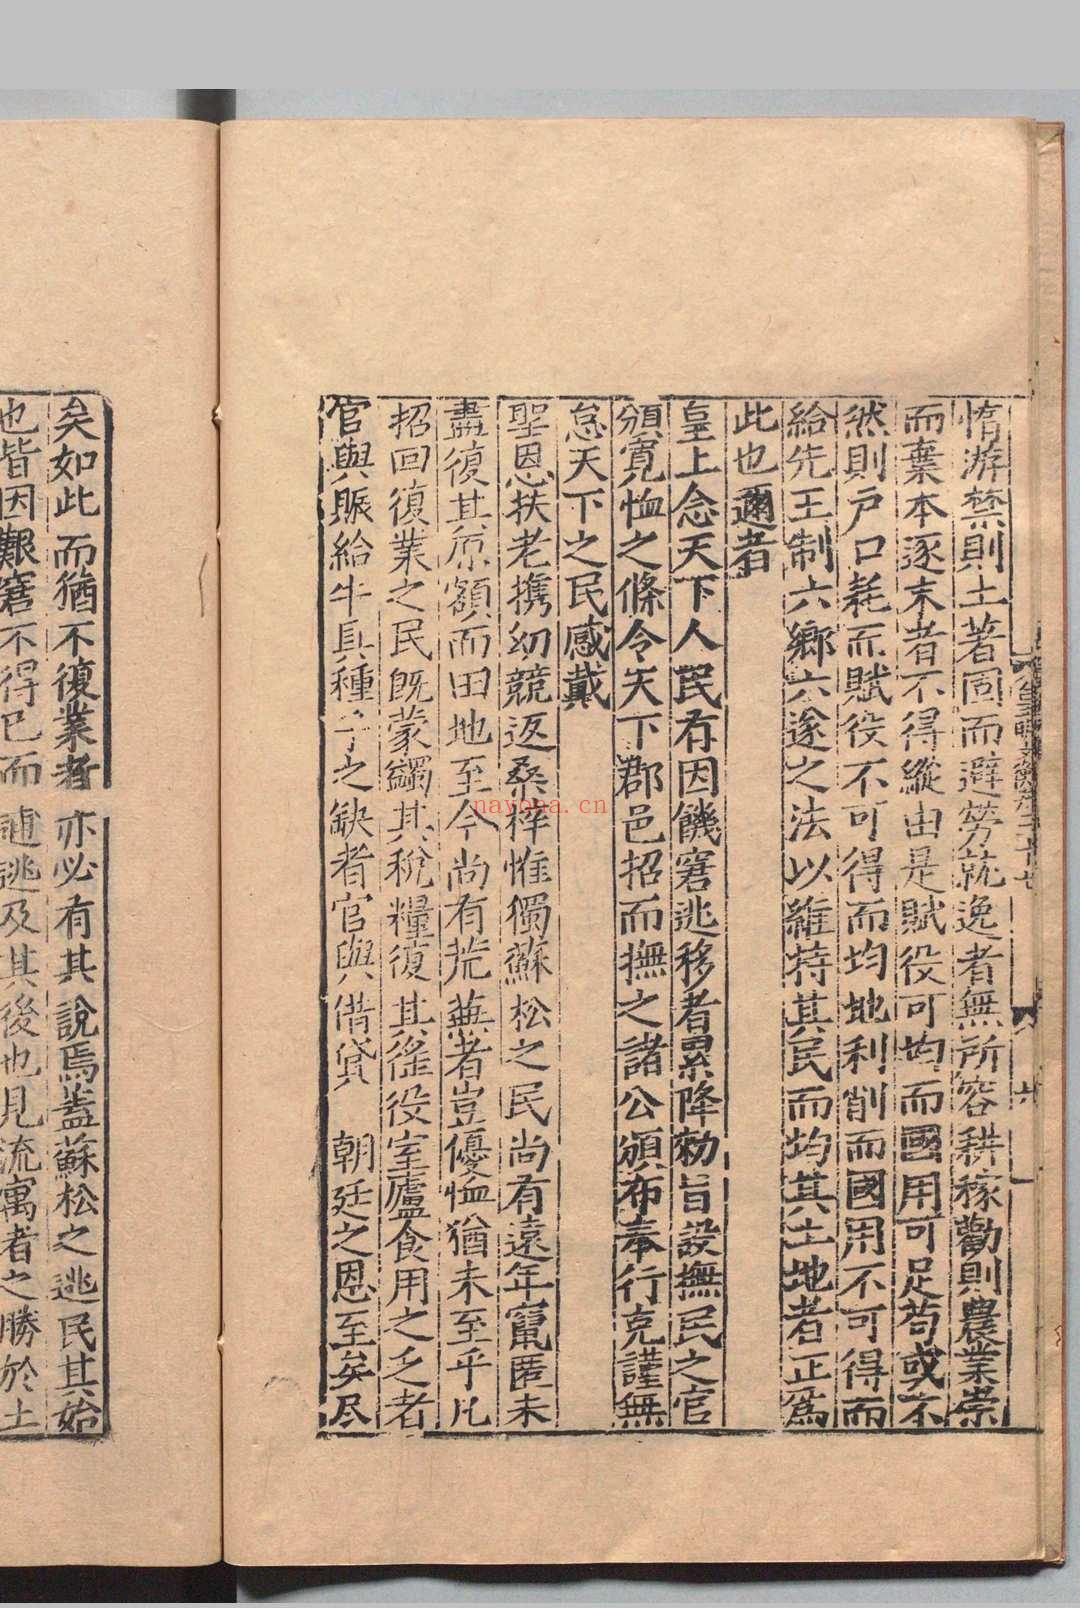 惰游禁則土著固而避勞就逸者無所容耕稼勸則農業崇
而棄本逐末者不得縱由是賦役可均而國用可足苟或不
然則戶口耗而賦役不可得而均地利削而國用不可得而
給先王制六鄉六遂之法以維持其民而均其土地者正爲
此也邇者
皇上念天下人民有因饑窘逃移者累降勑旨設撫民之官
頒寬恤之條令天下郡邑招而撫之諸公頒布奉行克謹無
怠天下之民感戴
聖恩扶老携幼競返桑梓惟獨蘇松之民尚有遠年竄匿未
盡復其原額而田地至今尚有荒蕪者豈優恤猶未至乎凡
招回復業之民既蒙蠲其稅糧復其徭役室廬食用之乏者
官與賑給牛具種子之缺者官與借貸 朝廷之恩至矣尽
矣如此而猶不復業者亦必有其說焉蓋蘇松之逃民其始
也皆因艱窘不得已而逋逃及其後也見流寓者之勝於土
nayona.cn